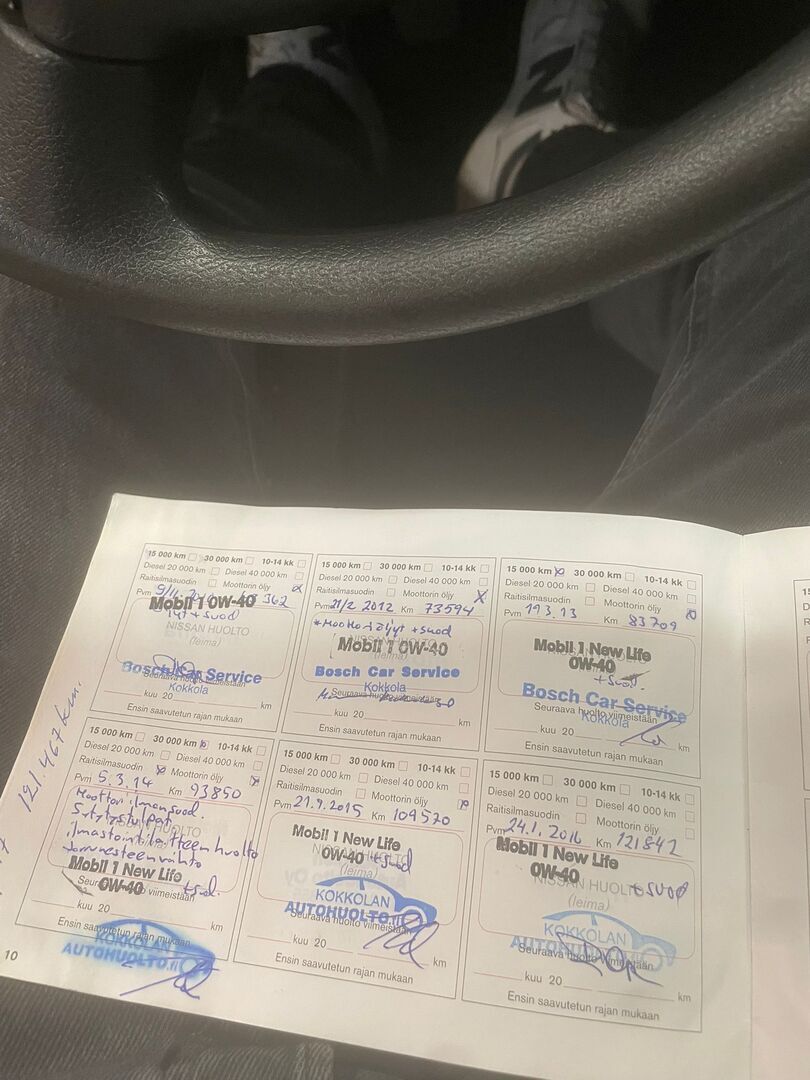 15 000 km 30 000 km 10-14 kk
Diesel 20 000 km Diesel 40 000 km
Raitisilmasuodin Moottorin öljy
Pvm 9/11 362
Mobil 1 0W-40
+ suod
NISSAN HUOLTO
(leima)
Bosch Car Service
Seuraava huolto viimeistään
Kokkola
kuu 20 km
Ensin saavutetun rajan mukaan
15 000 km 30 000 km 10-14 kk
Diesel 20 000 km Diesel 40 000 km
Raitisilmasuodin Moottorin öljy X
Pvm 21/2 2012 Km 73594
+ suod
Mobil 1 0W-40
Bosch Car Service
Kokkola
Seuraava huolto viimeistään
kuu 20 km
Ensin saavutetun rajan mukaan
15 000 km X 30 000 km 10-14 kk
Diesel 20 000 km Diesel 40 000 km
Raitisilmasuodin Moottorin öljy
Pvm 19 3.13 Km 83709
Mobil 1 New Life
0W-40
+ suod.
Bosch Car Service
Seuraava huolto viimeistään
Kokkola
kuu 20 km
Ensin saavutetun rajan mukaan
121.467 km.
15 000 km 30 000 km 10-14 kk
Diesel 20 000 km Diesel 40 000 km
Raitisilmasuodin X Moottorin öljy X
Pvm 5.3.14 Km 93850
Moottori ilmansuod.
Sytytystulpat
ilmastointilaitteen huolto
Jarrunesteen vaihto
Mobil 1 New Life
0W-40 + suod.
kuu 20 km
Ensin saavutetun rajan mukaan
KOKKOLAN
AUTOHUOLTO.fi
15 000 km 30 000 km 10-14 kk
Diesel 20 000 km Diesel 40 000 km
Raitisilmasuodin Moottorin öljy
Pvm 21.9.2015 Km 109570
Mobil 1 New Life
0W-40 + suod
NISSAN HUOLTO
(leima)
KOKKOLAN
AUTOHUOLTO.fi
Seuraava huolto viimeistään
kuu 20 km
Ensin saavutetun rajan mukaan
15 000 km 30 000 km 10-14 kk
Diesel 20 000 km Diesel 40 000 km
Raitisilmasuodin Moottorin öljy
Pvm 24.1.2016 Km 121842
Mobil 1 New Life
0W-40 + suod
NISSAN HUOLTO
(leima)
KOKKOLAN
AUTOHUOLTO
Seuraava huolto viimeistään
kuu 20 km
Ensin saavutetun rajan mukaan
10